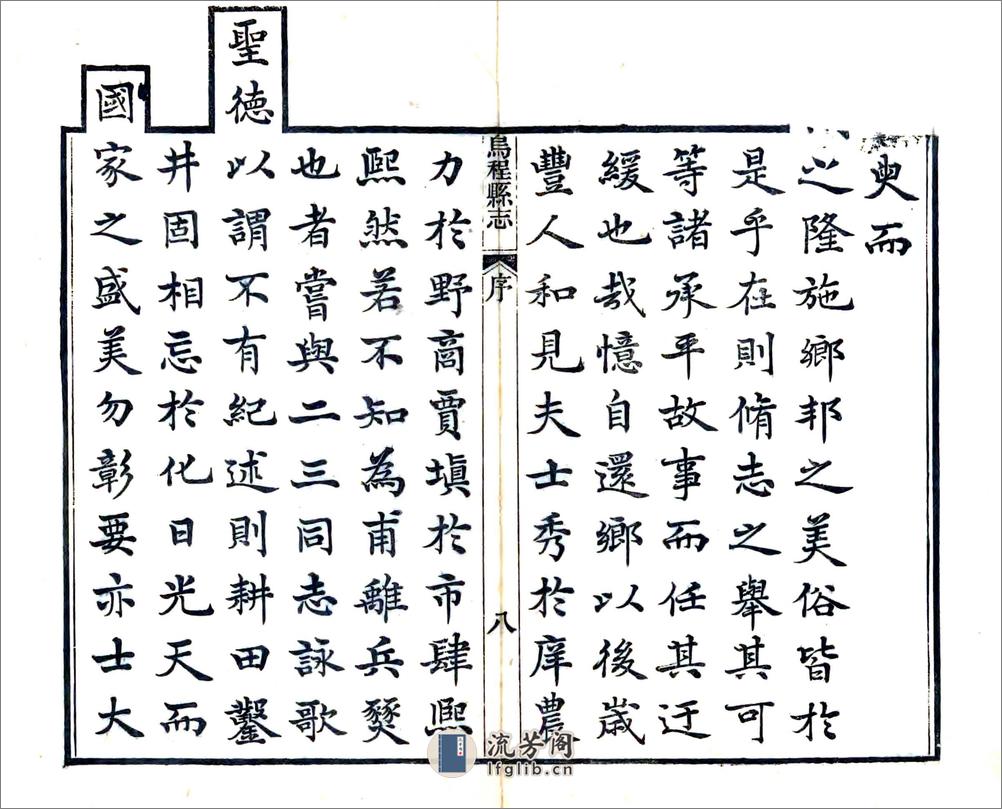 臾而
之隆施鄉邦之美俗皆於
是乎在則脩志之舉其可
等諸承平故事而任其迂
緩也哉憶自還鄉以後歲
豐人和見夫士秀於庠農
烏程縣志 序 八
力於野商賈塡於市肆熙
熙然若不知為甫離兵燹
也者嘗與二三同志詠歌
聖德以謂不有紀述則耕田鑿
井固相忘於化日光天而
國家之盛美勿彰要亦士大
流芳阁
lfglib.cn